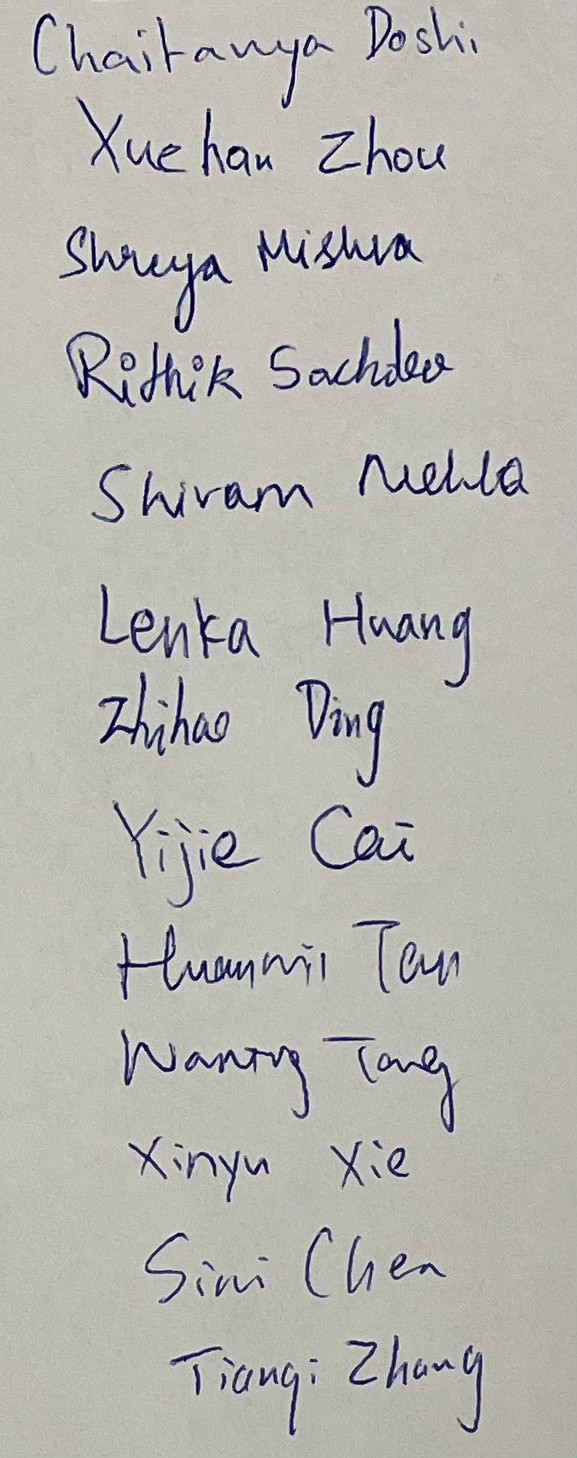 Chaitanya Doshi
Xuehan Zhou
Shreya Mishra
Rithik Sachdev
Shivam Mehta
Lenka Huang
Zhihao Ding
Yijie Cai
Tan
Waning Tang
Xinyu Xie
Sini Chen
Tianqi Zhang